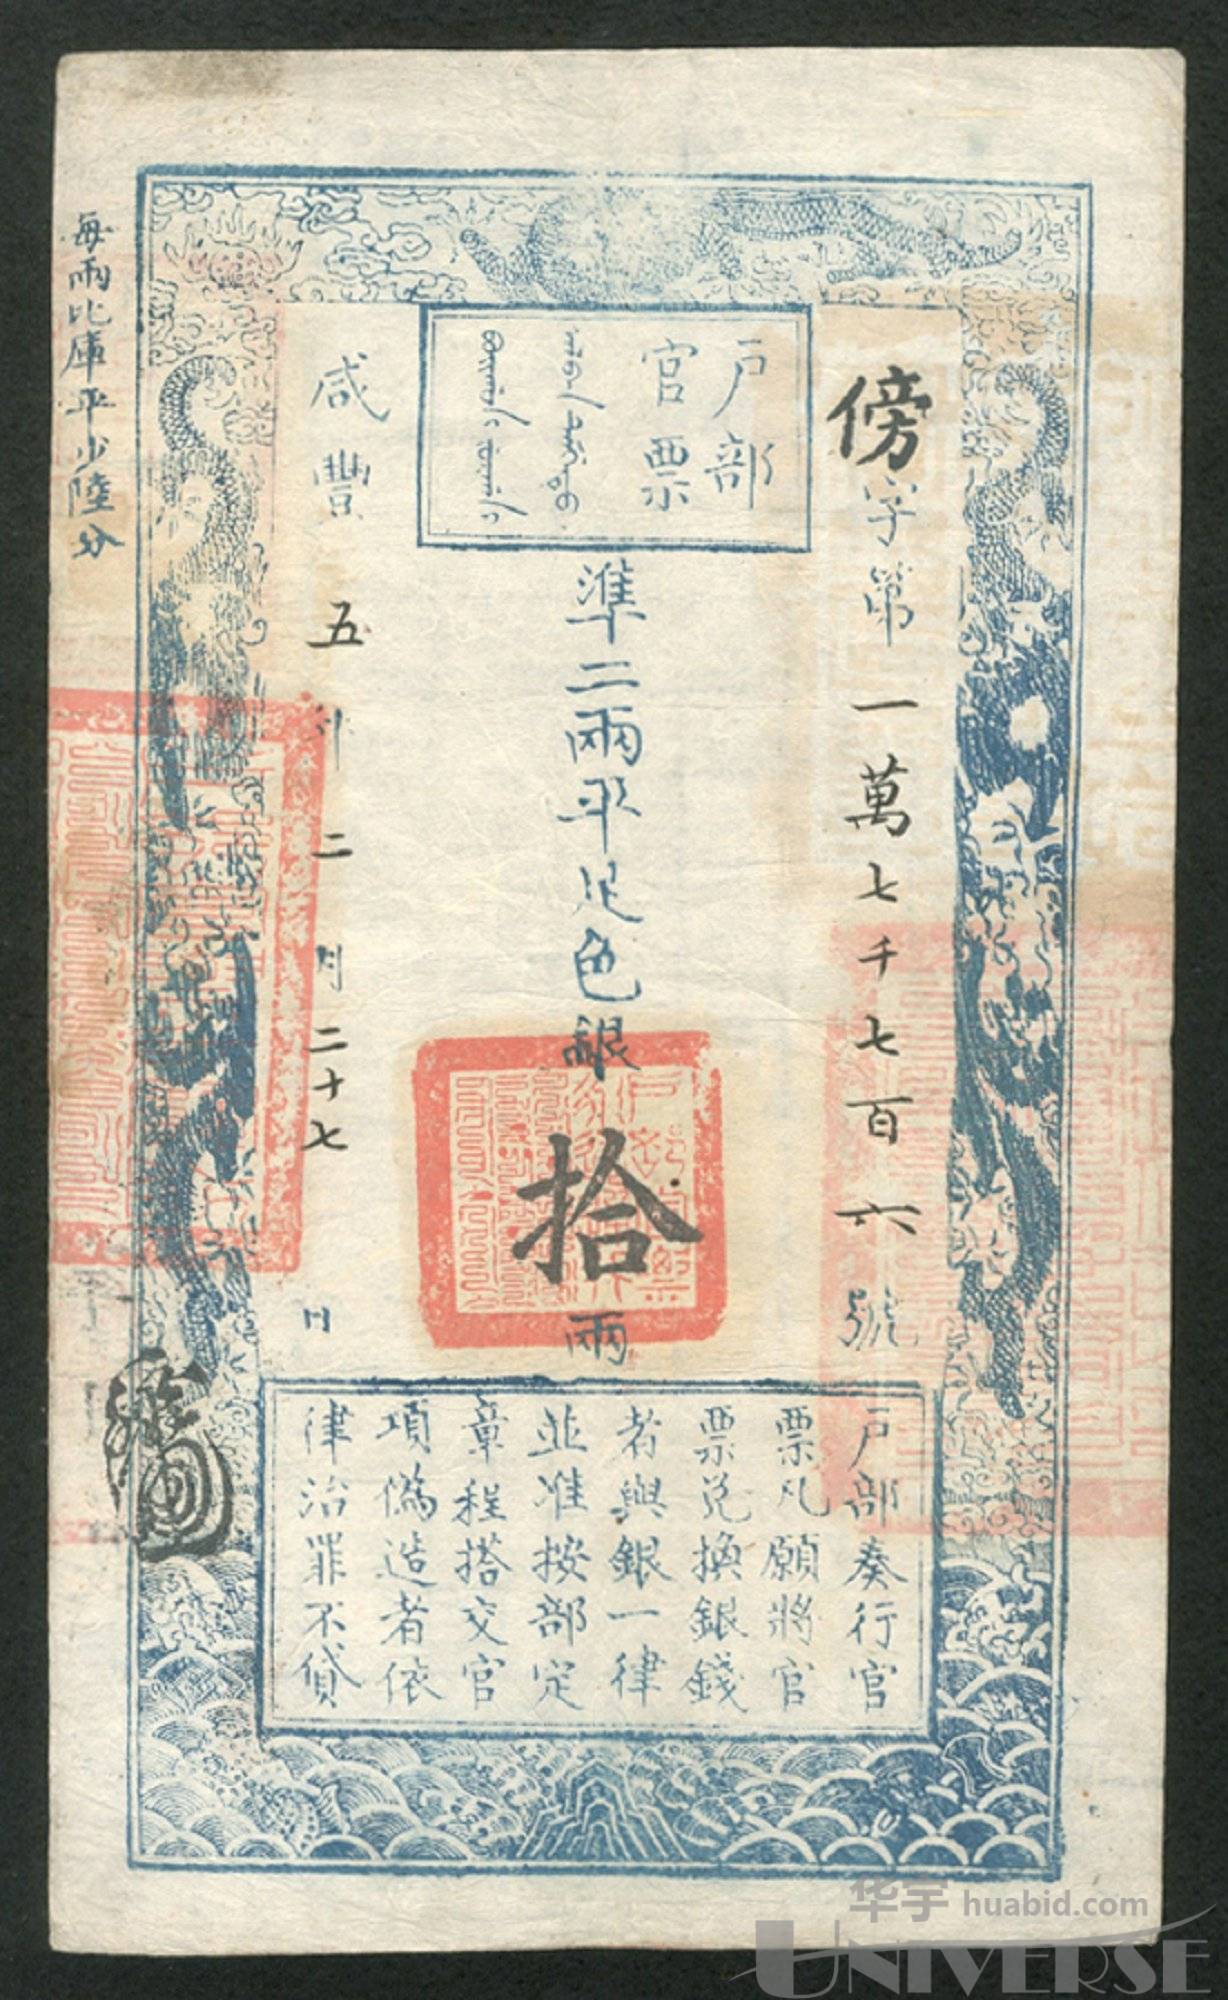 傍字第一萬七千七百六號
戶部
官票
準二兩平足色銀拾兩
咸豐五年二月二十七日
每兩比庫平少陸分
戶部奏行官
票凡願將官
票兌換銀錢
者與銀一律
並准按部定
章程搭交官
項偽造者依
律治罪不貸
华宇 huabid.com
UNIVERSE